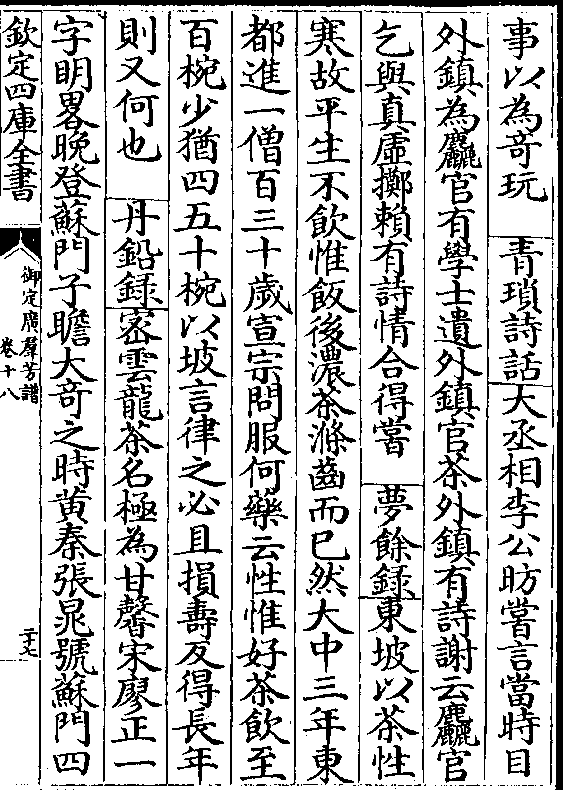 事以為奇玩　青瑣詩話大丞相李公昉嘗言當時目
外鎮為麤官有學士遺外鎮官茶外鎮有詩謝云麤官
乞與真虛擲賴有詩情合得嘗　夢餘錄東坡以茶性
寒故平生不飲惟飯後濃茶滌齒而已然大中三年東
都進一僧百三十歲宣宗問服何藥云性惟好茶飲至
百椀少猶四五十椀以坡言律之必且損壽反得長年
則又何也　丹鉛錄宻雲龍茶名極為甘馨宋廖正一
字明畧晚登蘇門子瞻大奇之時黄秦張晁號蘇門四
欽定四庫全書
御定廣羣芳譜
卷十八
二十七